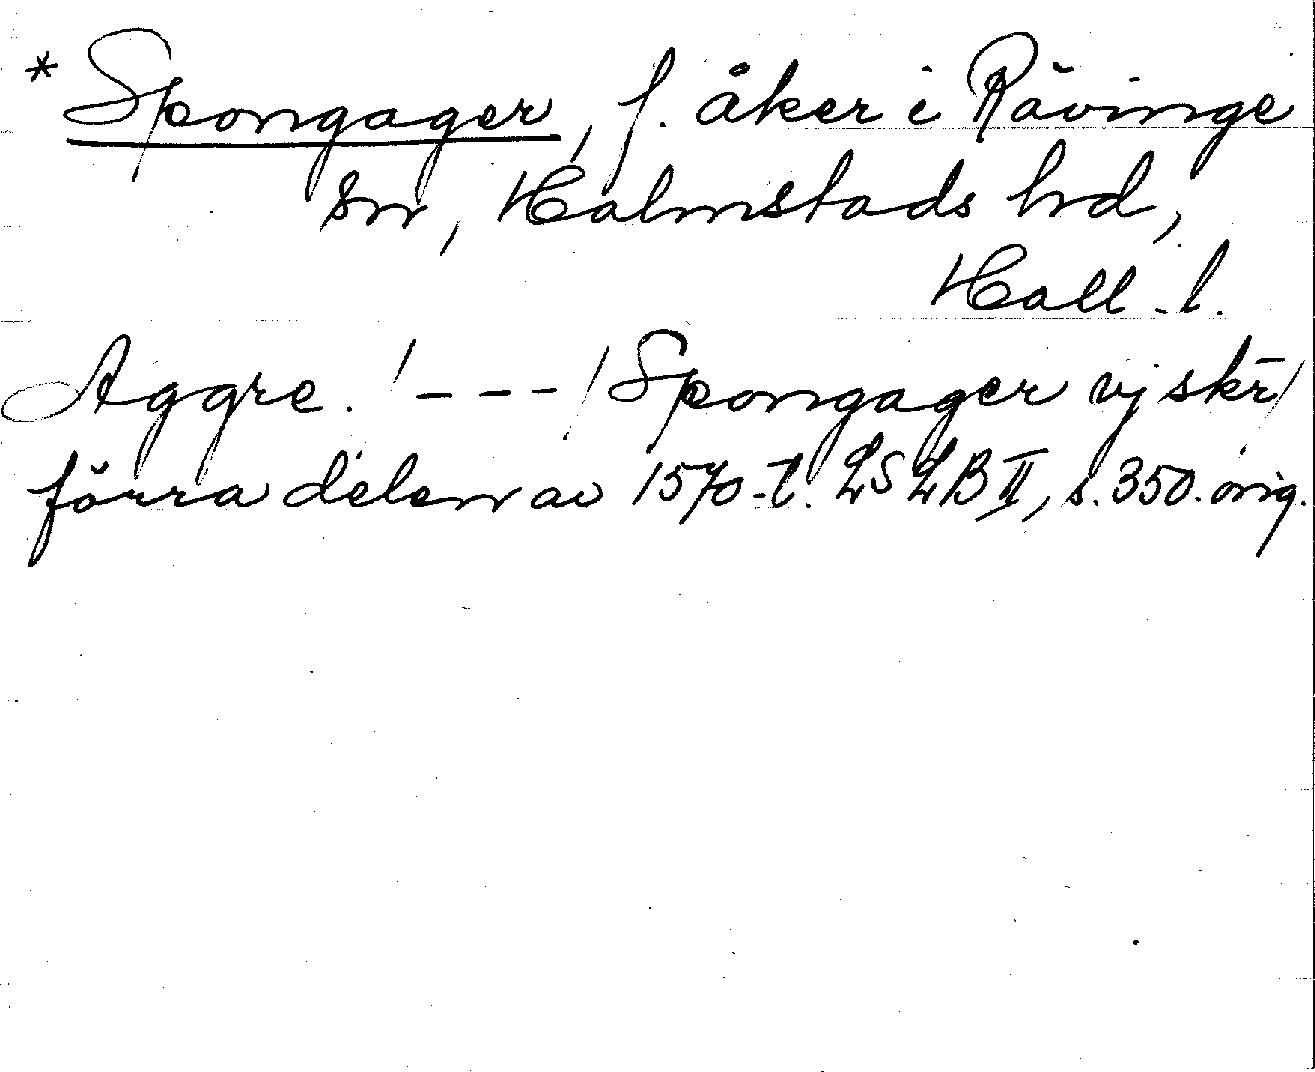 * Spongager, f. åker i Rävinge
sn, Halmstads hd,
Hall. l.
Aggre. / - - - / Spongager vj skr̄ /
förra delen av 1570-t. LSLB II, s. 350. orig.